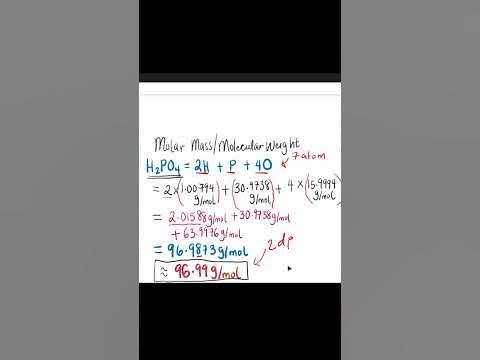 Molar Mass/Molecular Weight
H₂PO₄ = 2H + P + 4O
7 atom
= 2 × (1.00794 g/mol) + (30.9738 g/mol) + 4 × (15.9994 g/mol)
= 2.01588g/mol + 30.9738g/mol
+ 63.9976g/mol
= 96.9873g/mol
2dp
≈ 96.99g/mol